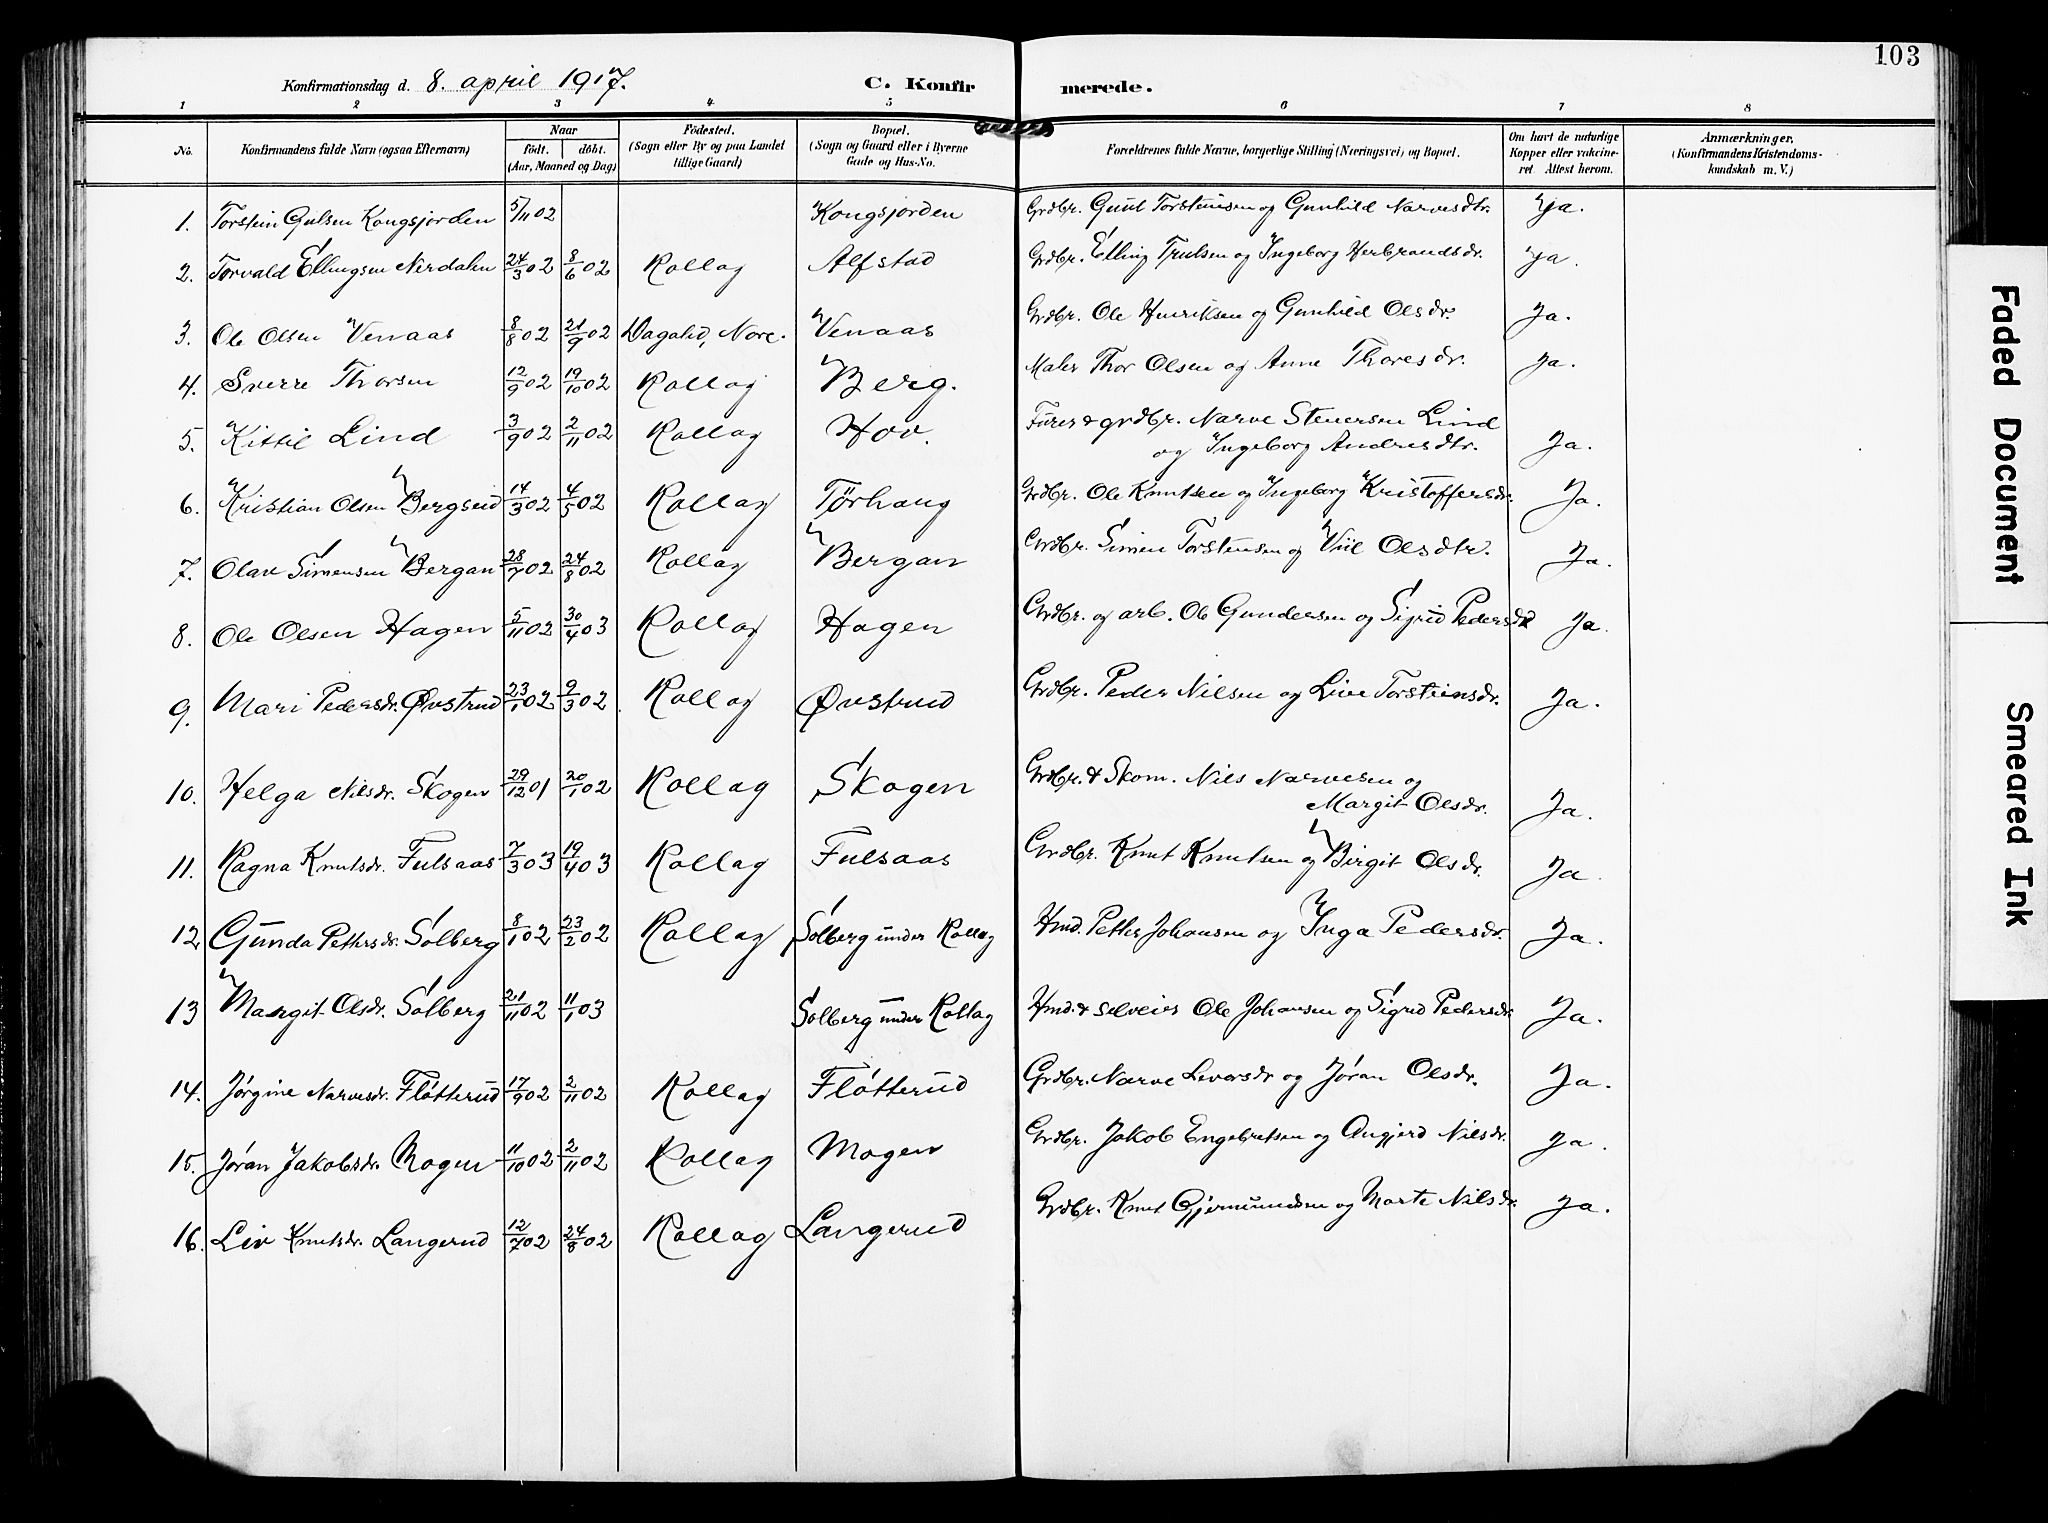 103
Konfirmationsdag d. 8. april 1917. C. Konfirmerede.
1 2 3 4. 5 6 7 8
No. Konfirmandens fulde Navn (ogsaa Efternavn) Naar födt. döbt. (Aar, Maaned og Dag) Födested. (Sogn eller By og paa Landet tillige Gaard) Bopæl. (Sogn og Gaard eller i Byerne Gade og Hus-No. Forældrenes fulde Navne, borgerlige Stilling (Næringsvei) og Bopæl. Om havt de naturlige Kopper eller vakcineret. Attest herom. Anmærkninger. (Konfirmandens Kristendomskundskab m. V.)
1. Torstein Gulsen Kongsjorden 5/11 02 Kongsjorden Grdbr. Guul Torsteinsen og Gunhild Narvesdtr. Ja.
2. Torvald Ellingsen Nerdalen 24/3 02 8/6 02 Rollag Alfstad Grdbr. Elling Trulsen og Ingeborg Herbrandsdr. Ja.
3. Ole Olsen Venaas 8/8 02 21/9 02 Dagalid, Nore. Venaas Grdbr. Ole Henriksen og Gunhild Olsdr. Ja.
4. Sverre Thorsen 12/9 02 19/10 02 Rollag Berg. Maler Thor Olsen og Anne Thoresdr. Ja.
5. Kittil Lind 3/9 02 2/11 02 Rollag Hov. Furer & grdbr. Narve Stenersen Lind
og Ingeborg Andresdtr. Ja.
6. Kristian Olsen Bergseid 14/3 02 4/5 02 Rollag Tørhaug Grdbr. Ole Knutsen og Ingeborg Kristoffersdr. Ja.
7. Olav Simensen Bergan 28/7 02 24/8 02 Rollag Bergan Grdbr. Simen Torstensen og Viil Olsdtr. Ja.
8. Ole Olsen Hagen 5/11 02 30/4 03 Rollag Hagen Grdbr. og arb. Ole Gundersen og Sigrid Pedersdr Ja.
9. Mari Pedersdr. Øvstrud 23/1 02 9/3 02. Rollag Øvstrud Grdbr. Peder Nilsen og Live Torsteinsdr. Ja.
10. Helga Nilsdr. Skogen 29/12 01 20/1 02 Rollag Skogen Grdbr. & Skom. Nils Narvesen og
Margit Olsdr. Ja.
11. Ragna Knutsdr. Fulsaas 7/3 03 19/4 03 Rollag Fulsaas Grdbr. Knut Knutsen og Birgit Olsdr. Ja.
12. Gunda Pettersdr. Solberg 8/1 02 23/2 02 Rollag Solberg under Rollag Hmd. Petter Johansen og Inga Pedersdr. Ja.
13 Margit Olsdr. Solberg 21/11 02 11/1 03 Solberg under Rollag Hmd. & selveier Ole Johansen og Sigrid Pedersdr. Ja.
14. Jørgine Narvesdr. Fløtterud 17/9 02 2/11 02 Rollag Fløtterud Grdbr. Narve Liversdr og Jøran Olsdr. Ja.
15. Jøran Jakobsdr. Mogen 11/10 02 2/11 02 Rollag Mogen Grdbr. Jakob Engebretsen og Angjerd Nilsdr. Ja.
16. Liv Knutsdr. Langerud 12/7 02 24/8 02 Rollag Langerud Grdbr. Knut Gjermundsen og Marte Nilsdr. Ja.
Faded Document
Smeared Ink